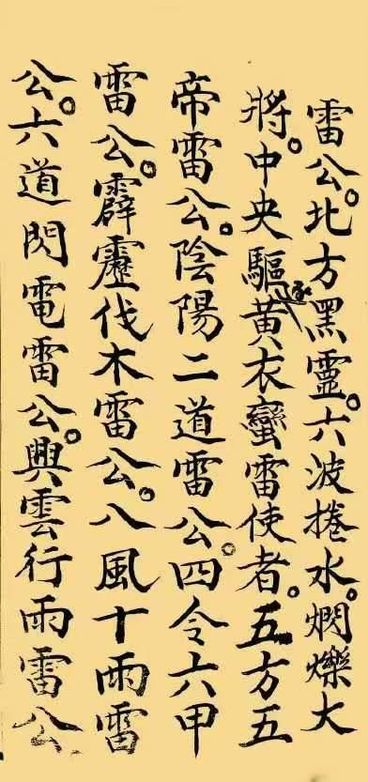 雷公。北方黑靈。六波捲水。爍大
將。中央驅黃衣蠻雷使者。五方五
帝雷公。陰陽二道雷公。四令六甲
雷公。霹靂伐木雷公。八風十雨雷
公。六道閃電雷公。興雲行雨雷公